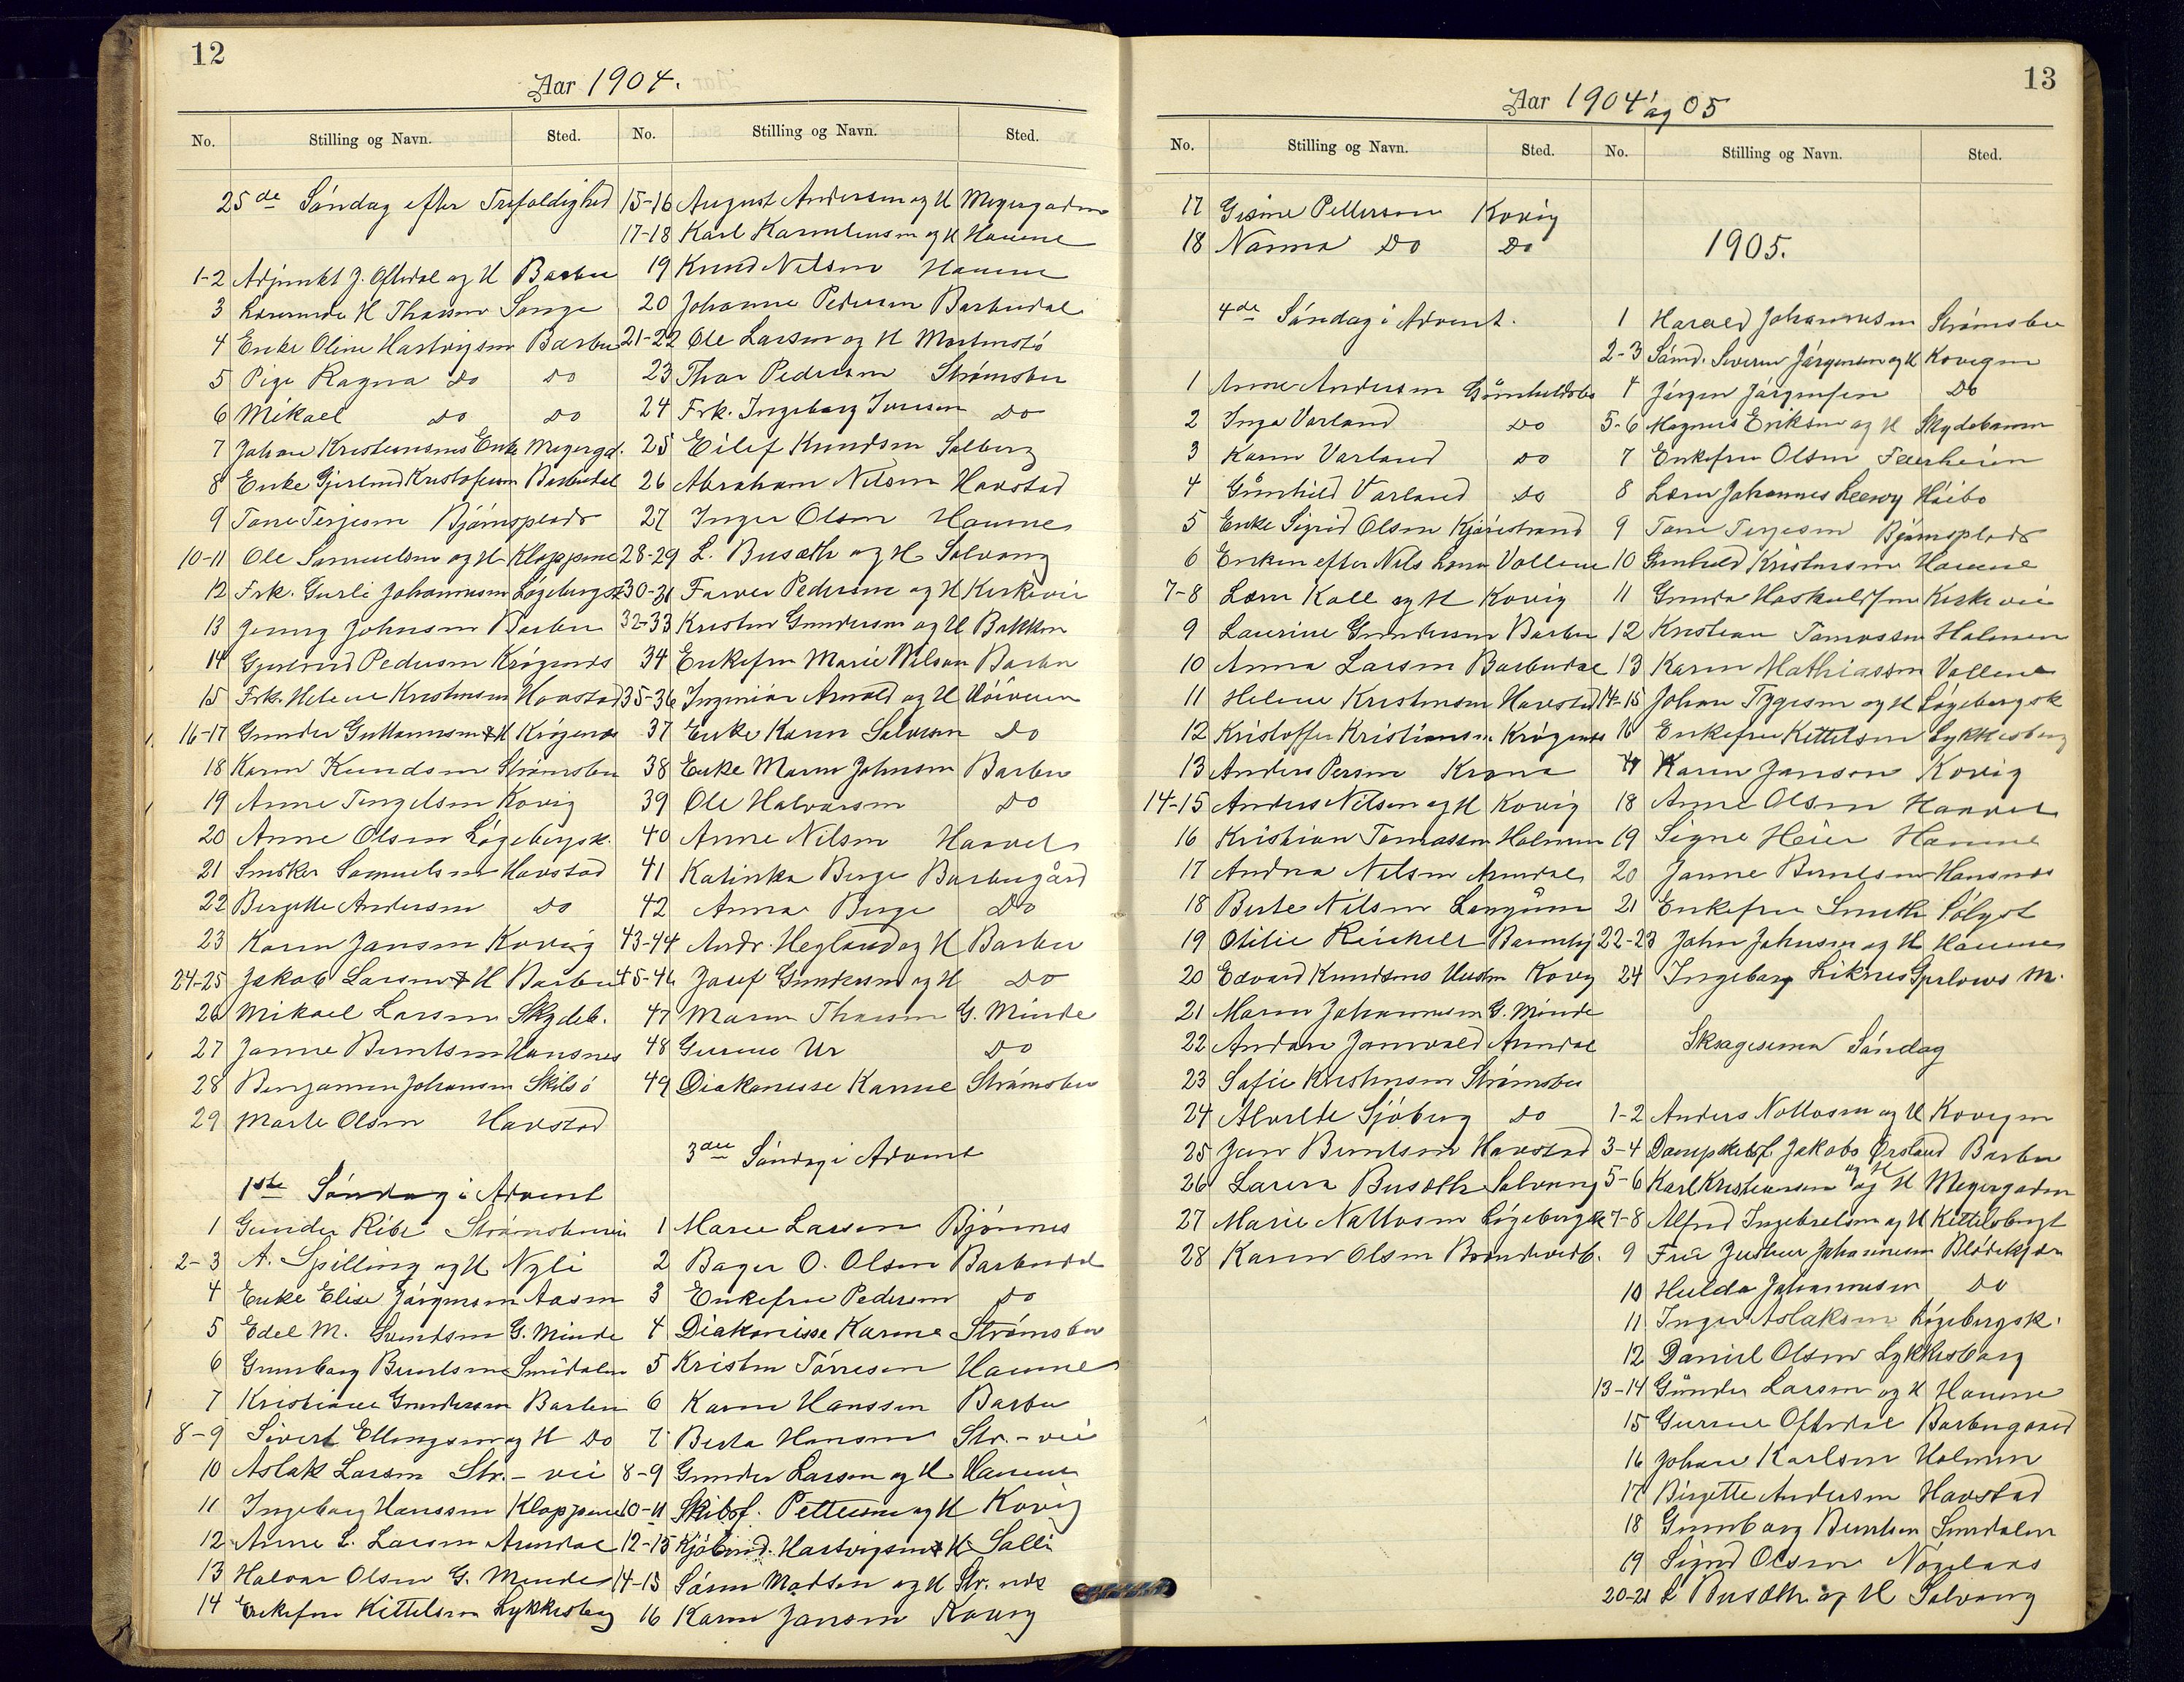 12
Aar 1904.
No. Stilling og Navn. Sted. No. Stilling og Navn. Sted.
25de Söndag efter Trefoldighed
1-2 Adjunkt J. Oftedal og H Barbu
3 H Thorsen Songe
4 Enke Oline Hartvigsen Barbu
5 Pige Ragna Do Do
6 Mikael Do Do
7 Johan Kristiansens Enke Meyergd.
8 Enke Gjerlund Kristofersen Barbudal
9 Tone Terjesen Bjömsplads
10-11 Ole Samuelsen og H Kloppene
12 Frk. Gurli Johannesen Lögebergsk
13 Jenny Johnsen Barbu
14 Gjertrud Pedersen Krögenes
15 Frk. Helene Kristensen Havstad
16-17 Gunder Guttormsen & H Krögenes
18 Karen Knudsen Strømsbu
19 Anne Tengelsen Kovig
20 Anne Olsen Lögebergsk.
21 Snekker Samuelsen Havstad
22 Bergette Andersen Do
23 Karen Jansen Kovig
24-25 Jakob Larsen & H Barbu
26 Mikael Larsen Skydeb.
27 Janne Berntsen Hansnes
28 Benjamin Johansen Skilsö
29 Marte Olsen Havstad
1ste Söndag i Advent
1 Gunder Ribe Strømsbuvei
2-3 A. Spilling og H Nyli
4 Enke Elise Jörgensen Aasen
5 Edel M. Svendsen G. Minde
6 Gunnborg Berntsen Smidalen
7 Kristiane Gundersen Barbu
8-9 Sivert Ellingsen og H Do
10 Aslak Larsen Str. - vei
11 Ingeborg Hanssen Kloppene
12 Anne L. Larsen Arendal
13 Halvor Olsen G. Minde
14 Enkefru Kittelsen Lykkesborg
15-16 August Andersen og H Meyergaden
17-18 Karl Karmlensen og H Haune
19 Knud Nilsen Haune
20 Johanne Pedersen Barbudal
21-22 Ole Larsen og H Mortenstö
23 Thor Pedersen Strømsbu
24 Frk. Ingeborg Iversen Do
25 Eilef Knudsen Solberg
26 Abraham Nilsen Havstad
27 Inger Olsen Haune
28-29 L. Busæth og H Solvang
30-31 Farver Pedersen og H Kirkevei
32-33 Kristen Gundersen og H Bakken
34 Enkefru Marie Nilsen Barbu
35-36 Ingeniör Arnold og H Höiveien
37 Enke Karen Salvesen Do
38 Enke Maren Johnsen Barbu
39 Ole Halvorsen Do
40 Anne Nilsen Haavet
41 Katinka Berge Barbugård
42 Anna Berge Do
43-44 Andr. Hegland og H Barbu
45-46 Josef Gundersen og H Do
47 Maren Thorsen G. Minde
48 Gurine Ur Do
49 Diakonisse Karine Strømsbu
3die Söndag i Advent
1 Marie Larsen Bjönnes
2 Bager O. Olsen Barbudal
3 Enkefru Pedersen Do
4 Diakonisse Karine Strømsbu
5 Kristen Törresen Haune
6 Karen Hanssen Barbu
7 Berta Hansen Str. - vei
8-9 Gunder Larsen og H Haune
10-11 Skibsf. Pettersen og H Kovig
12-13 Kjöbmd. Hartvigsen & H Solli
14-15 Sören Madsen og H Str. nds
16 Karen Jansen Kovig
13
Aar 1904 og 05
No. Stilling og Navn. Sted. No. Stilling og Navn. Sted.
17 Gesine Pettersen Kovig
18 Nanna Do Do
4de Söndag i Advent.
1 Anne Andersen Gunhildsbo
2 Inga Varland Do
3 Karen Varland Do
4 Gunhild Varland Do
5 Enke Sigrid Olsen Kjörestrand
6 Enken efter Nils Vollene
7-8 Lærer Kall og H Kovig
9 Laurine Gundersen Barbu
10 Anna Larsen Barbudal
11 Helene Kristensen Havstad
12 Kristoffer Kristiansen Krögenes
13 Anders Persen Krana
14-15 Anders Nilsen og H Kovig
16 Kristian Tomassen Holmen
17 Andrea Nilsen Arendal
18 Berte Nilsen Langüm
19 Otilie Reickelt Barnehj
20 Edvard Knudsens Hustru Kovig
21 Maren Johannesen G. Minde
22 Andor Janvold Arendal
23 Sofie Kristensen Strømsbu
24 Alvilde Sjöberg Do
25 Jens Berntsen Havstad
26 Laura Busæth Solvang
27 Marie Nottosen Lögebergsk
28 Karen Olsen Brændevedb.
1905.
1 Harald Johannesen Strömsbu
2-3 Sömd. Severin Jörgensen og H Kovigen
4 Jörgen Jörgensen Do
5-6 Magnus Eriksen og H Skydebanen
7 Enkefru Olsen Feierheien
8 Lærer Johannes Leervy Höibo
9 Tone Terjesen Bjömsplads
10 Gunhild Kristensen Haune
11 Gunda Haskoldsen Kirkevei
12 Kristian Tomassen Holmen
13 Karen Mathiassen Vollene
14-15 Johan Tygesen og H Lögebergsk
16 Enkefru Kittelsen Lykkesborg
17 Karen Janson Kovig
18 Anne Olsen Haavet
19 Signe Heier Haune
20 Janne Berntsen Hansnes
21 Enkefru Smith Solyst
22-23 John Johnsen og H Haune
24 Ingeborg Liknes Gjerlows M.
Skragesima Söndag
1-2 Anders Nottosen og H Kovigen
3-4 Dampskibsf. Jakobs Ørsland og H Barbu
5-6 Karl Kristiansen og H Meyergaden
7-8 Alfred Ingebretsen og H Kittelsbugt
9 Fru Justine Johannesen Blödekjær
10 Hulda Johannesen Do
11 Inger Aslaksen Lögebergsk.
12 Daniel Olsen Lykkesborg
13-14 Gunder Larsen og H Haune
15 Gurine Oftedal Barbugaard
16 Johan Karlsen Holmen
17 Birgette Andersen Havstad
18 Gunnborg Berntsen Smidalen
19 Sigrid Olsen Nögelaas
20-21 L Busæth og H Solvang